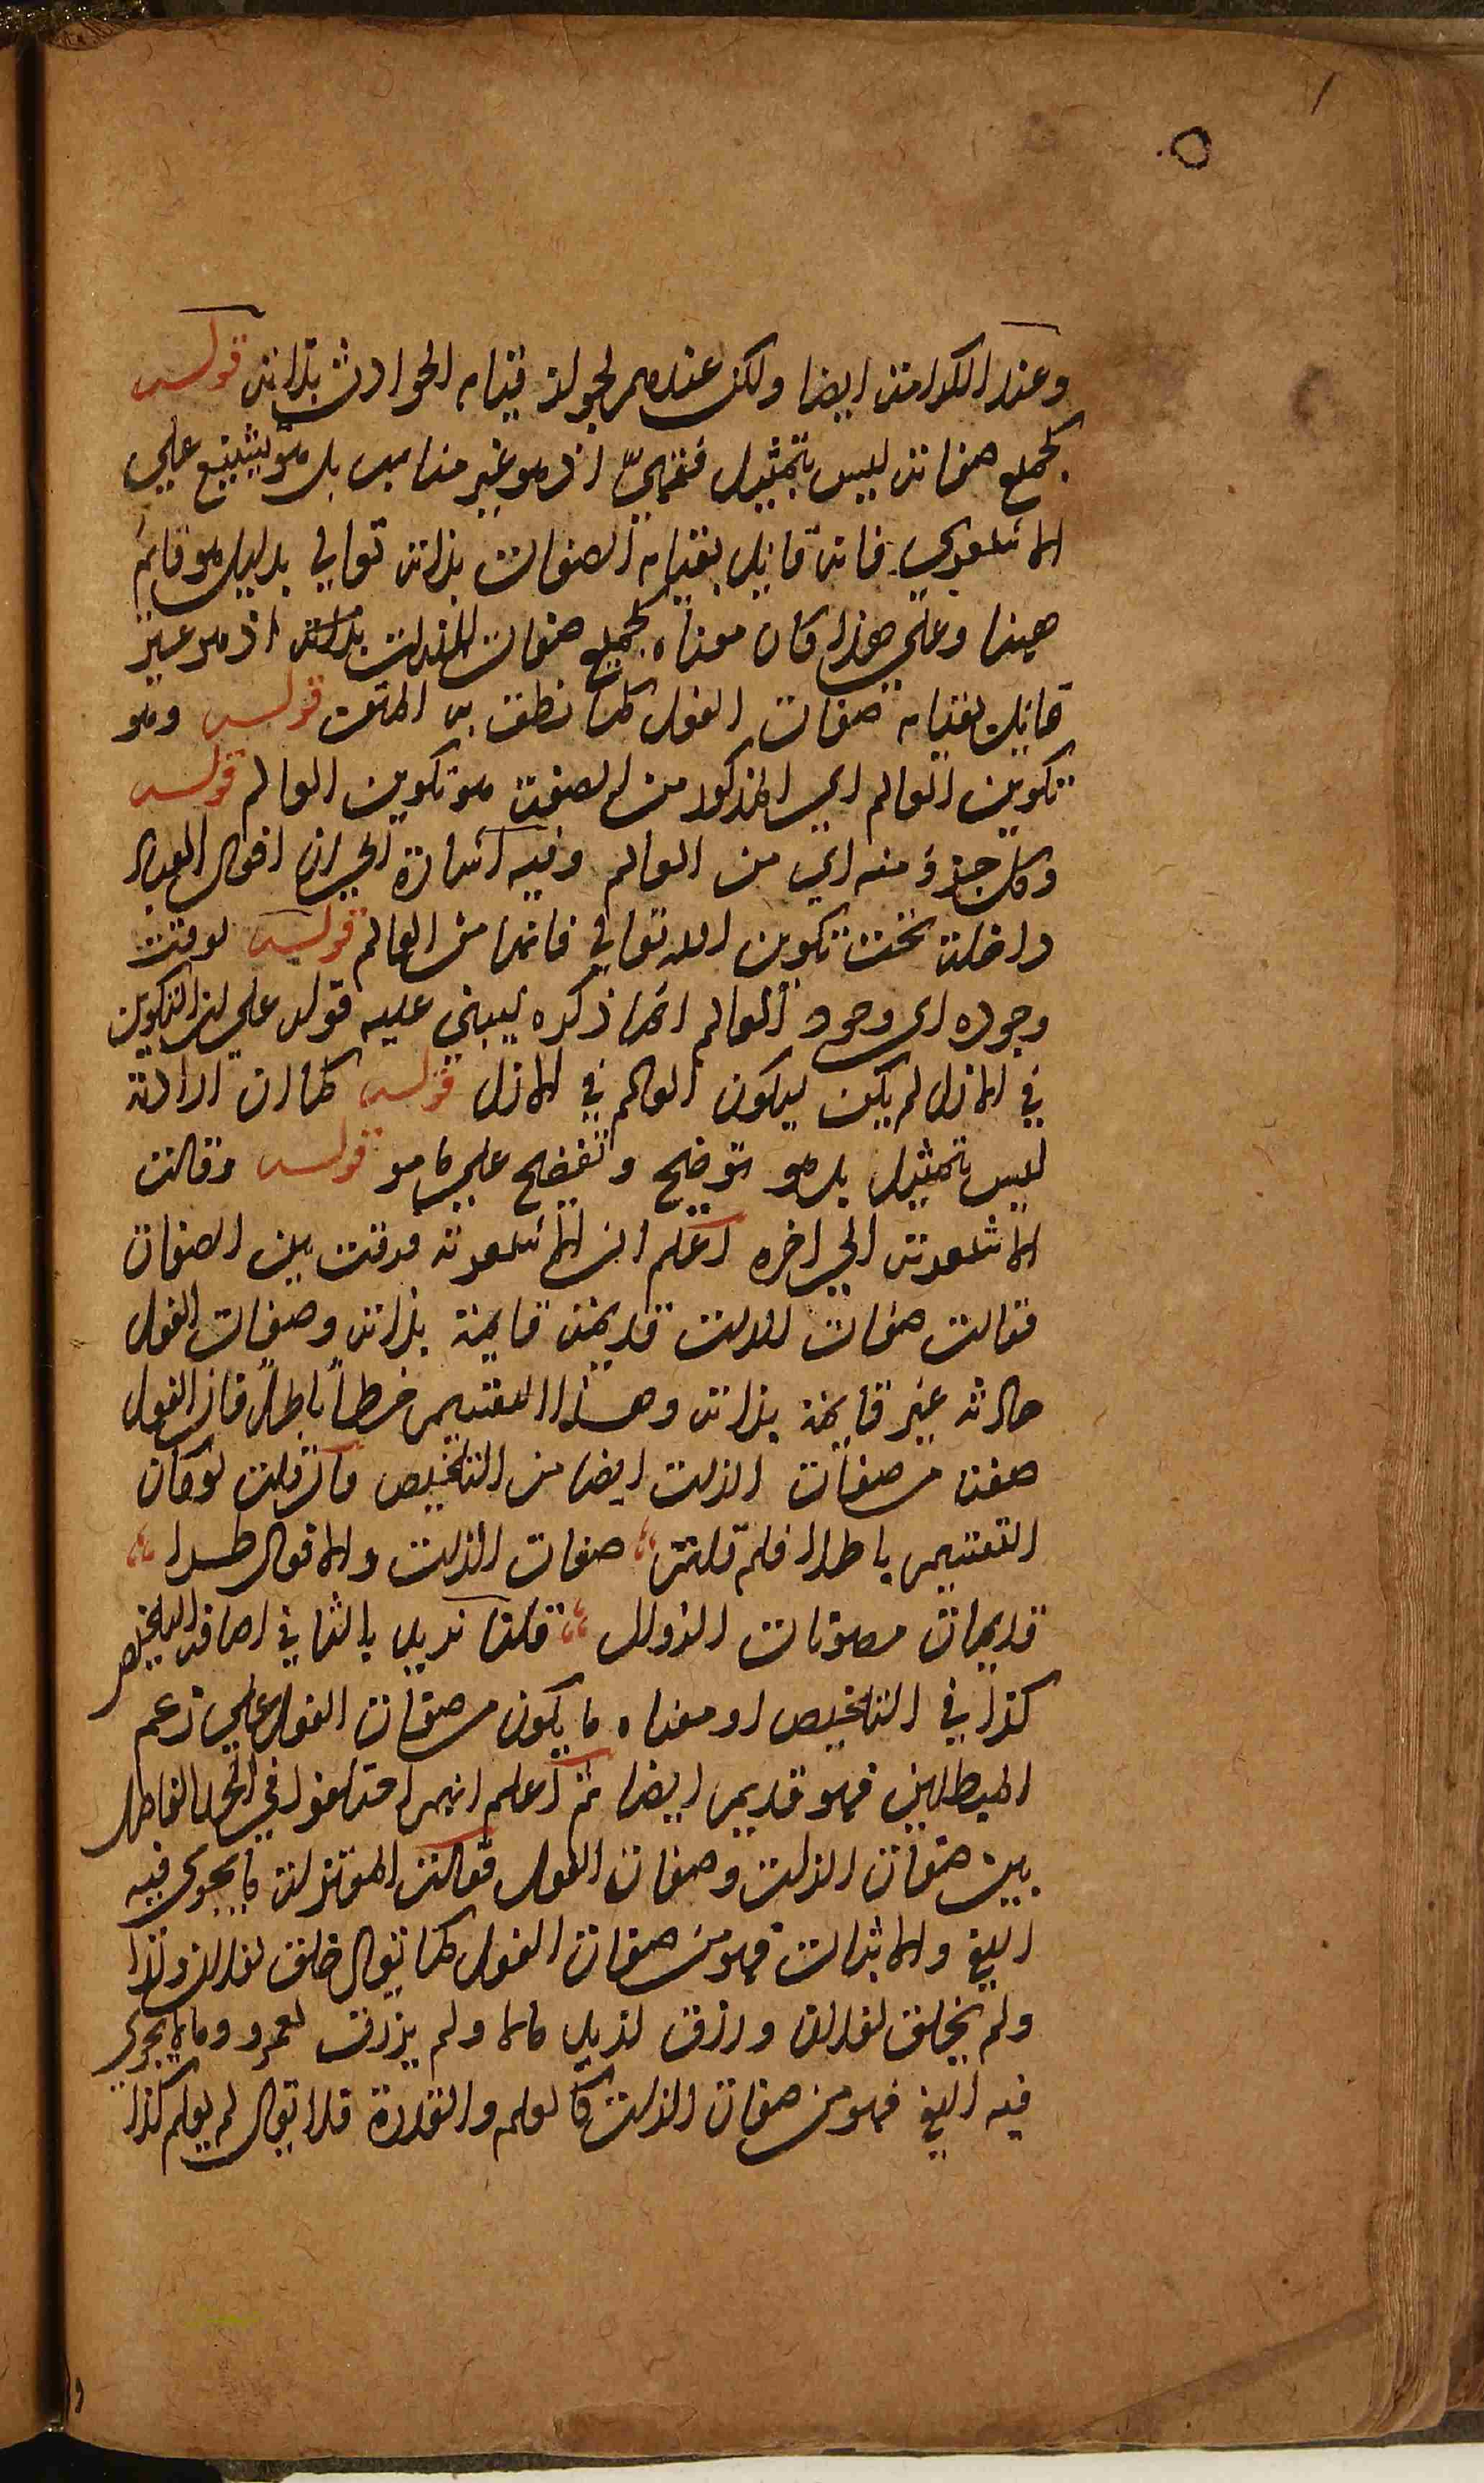 وعند الكرامية ايضا ولكن عندهم يجوز قيام الحوادث بذاته قوله
كجميع صفاته ليس بتمثيل فقهيّ اذ هو غير مناسب بل هو تشنيع على
الاشعري فانه قايل بقيام الصفات بذاته تعالى بدليل هو قايم
هينا وعلى هذا كان معناه كجميع صفات الذات بذاته اذ هو غير
قايل بقيام صفات الفعل كما نطق به المتن قوله وهو
تكوين العالم اي المذكور من الصفة هو تكوين العالم قوله
وكل جزء منه اي من العالم وفيه اشارة الى ان افعال العباد
داخلة تحت تكوين الله تعالى فانها من العالم قوله لوقت
وجوده اى وجود العالم انما ذكره ليبنى عليه قوله على ان التكوين
في الازل لم يكن ليكون العالم في الازل قوله كما ان ارادته
ليس بتمثيل بل هو توضيح وتفضيح على ما هو قوله وقالت
الاشعرية الى اخره اعلم ان الاشعرية فرقت بين الصفات
فقالت صفات الذات قديمة قايمة بذاته وصفات الفعل
حادثة غير قايمة بذاته وهذا التقسيم خطأ باطل فان الفعل
صفة من صفات الذات ايضا من التلخيص فان قلت لو كان
التقسيم باطلا فلم قلتم صفات الذات والافعال طرا
قديمات مصونات الزوال قلنا نريد بالثاني اضافة
كذا في التلخيص او معناه ما يكون من صفات الفعل على زعم
المبطلين فهو قديم ايضا ثم اعلم انهم اختلفوا في الحد الفاصل
بين صفات الذات وصفات الفعل فقالت المعتزلة ما يجرى فيه
النفي والاثبات فهو من صفات الفعل كما يقال خلق لفلان ولدا
ولم يخلق لفلان ورزق لزيد مالا ولم يرزق لعمرو وما لا يجرى
فيه النفي فهو من صفات الذات كالعلم والقدرة فلا يقال لم يعلم كذا